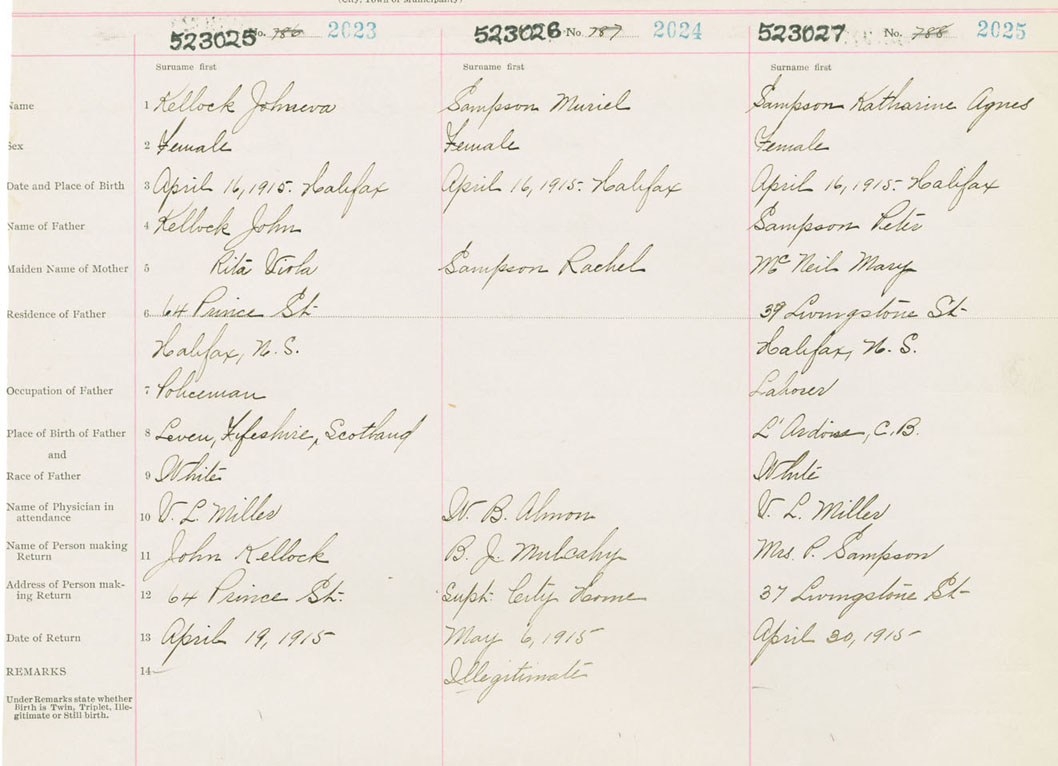 (City, Town or Municipality)
523025 No. 786 2023 523026 No. 787 2024 523027 No. 788 2025
Surname first Surname first Surname first
Name 1 Kellock Johneva Sampson Muriel Sampson Katharine Agnes
Sex 2 Female Female Female
Date and Place of Birth 3 April 16, 1915. Halifax April 16, 1915. Halifax April 16, 1915. Halifax
Name of Father 4 Kellock John Sampson Peter
Maiden Name of Mother 5 Rita Viola Sampson Rachel McNeil Mary
Residence of Father 6 64 Prince St. 39 Livingstone St.
Halifax, N.S. Halifax, N.S.
Occupation of Father 7 Policeman Laborer
Place of Birth of Father 8 Leven, Fifeshire, Scotland L'Ardoise, C.B.
and
Race of Father 9 White White
Name of Physician in
attendance 10 V. L. Miller W. B. Almon V. L. Miller
Name of Person making
Return 11 John Kellock B. J. Mulcahy Mrs. P. Sampson
Address of Person mak-
ing Return 12 64 Prince St. Supt. City Home 37 Livingstone St.
Date of Return 13 April 19, 1915 May 6, 1915 April 30, 1915
REMARKS 14 Illegitimate
Under Remarks state whether
Birth is Twin, Triplet, Ille-
gitimate or Still birth.